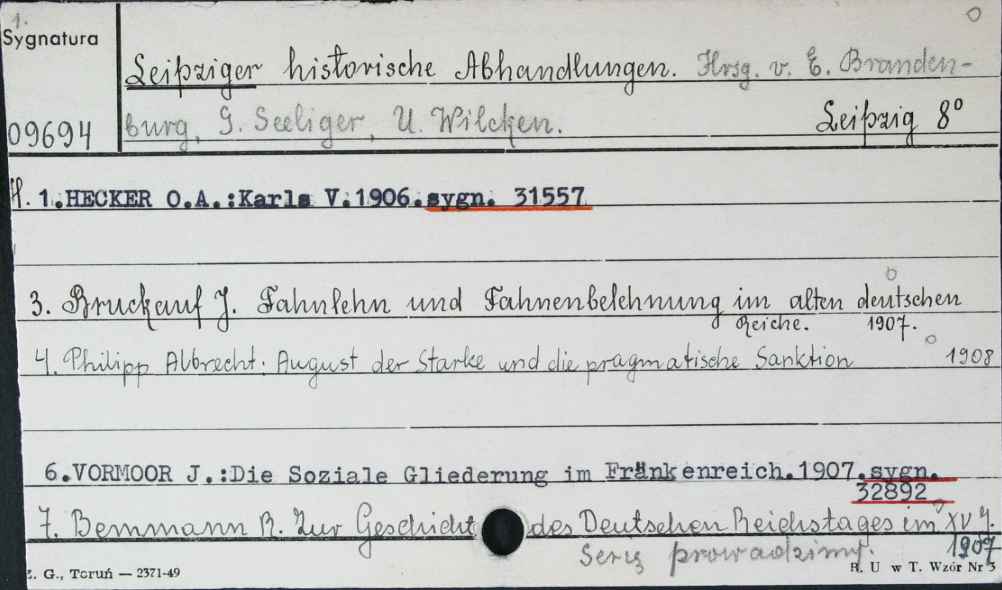 1.
Sygnatura
09694
Leipziger historische Abhandlungen. Hrsg. v. E. Branden-
burg, G. Seeliger, U. Wilcken.
Leipzig 8°
H. 1.HECKER O.A.:Karls V.1906.sygn. 31557
3. Bruckauf J. Fahnlehn und Fahnenbelehnung im alten deutschen
Reiche. 1907.
4. Philipp Albrecht. August der Starke und die pragmatische Sanktion 1908
6.VORMOOR J.:Die Soziale Gliederung im Fränkenreich.1907.sygn.
32892
7. Bemmann R. Zur Geschicht des Deutschen Reichstages im XV J.
1907
Serię prowadzimy.
Z. G., Toruń — 2371-49
B. U w T. Wzór Nr 3